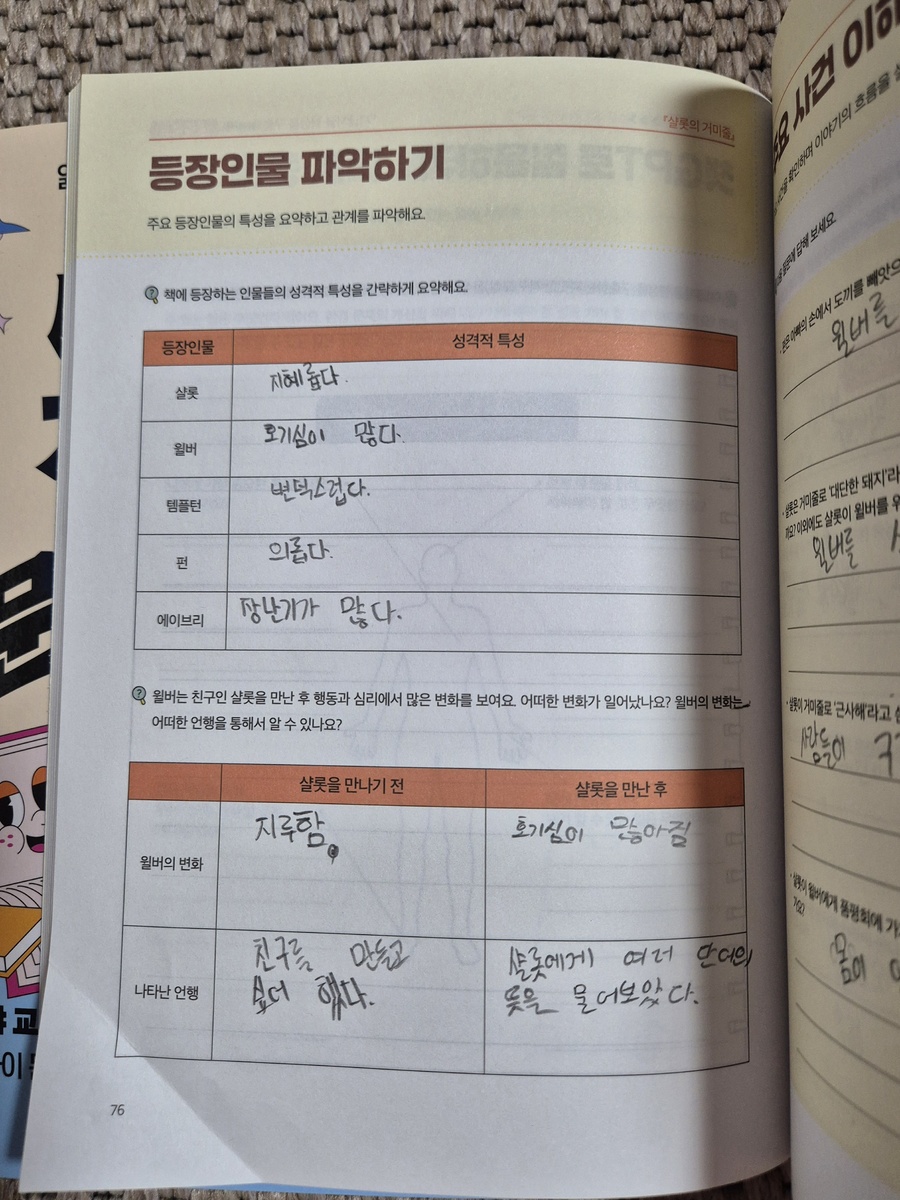 『샬롯의 거미줄』
등장인물 파악하기
주요 등장인물의 특성을 요약하고 관계를 파악해요.
책에 등장하는 인물들의 성격적 특성을 간략하게 요약해요.
등장인물 성격적 특성
샬롯 지혜롭다.
윌버 호기심이 많다.
템플턴 변덕스럽다.
펀 의롭다.
에이브리 장난기가 많다.
윌버는 친구인 샬롯을 만난 후 행동과 심리에서 많은 변화를 보여요. 어떠한 변화가 일어났나요? 윌버의 변화는
어떠한 언행을 통해서 알 수 있나요?
샬롯을 만나기 전 샬롯을 만난 후
윌버의 변화 지루함. 호기심이 많아짐
나타난 언행 친구를 만들고 샬롯에게 여러 단어의
싶어 했다. 뜻을 물어보았다.
76
사건 이해
확인하며 이야기의 흐름을
질문에 답해 보세요.
펀은 아빠의 손에서 도끼를 빼앗으
윌버를
샬롯은 거미줄로 '대단한 돼지'라
까요? 이외에도 샬롯이 윌버를 위
윌버를
샬롯이 거미줄로 '근사해'라고
사람들이
샬롯이 윌버에게 품평회에 가
가요?
몸이